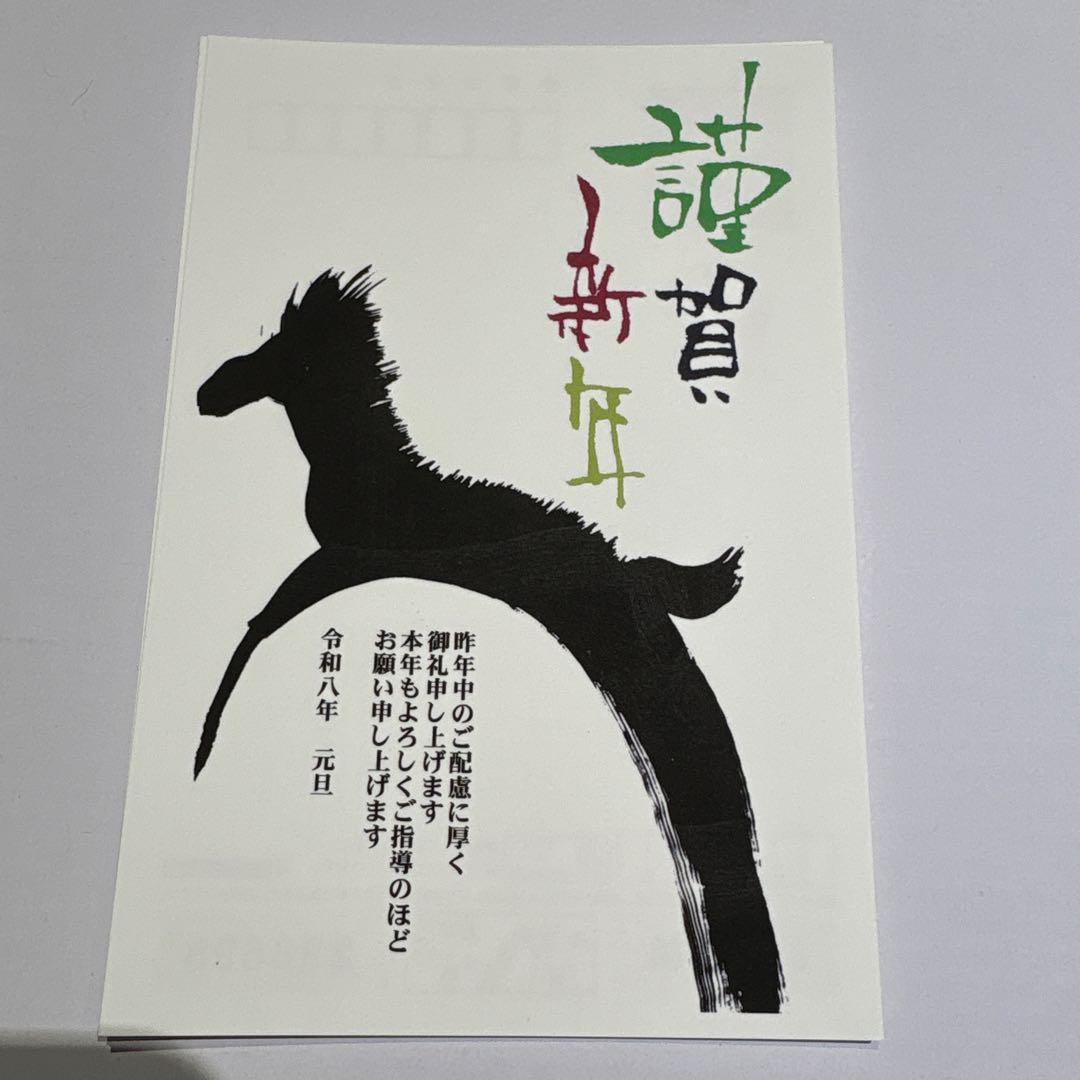 謹賀
新年
昨年中のご配慮に厚く
御礼申し上げます
本年もよろしくご指導のほど
お願い申し上げます
令和八年　元旦